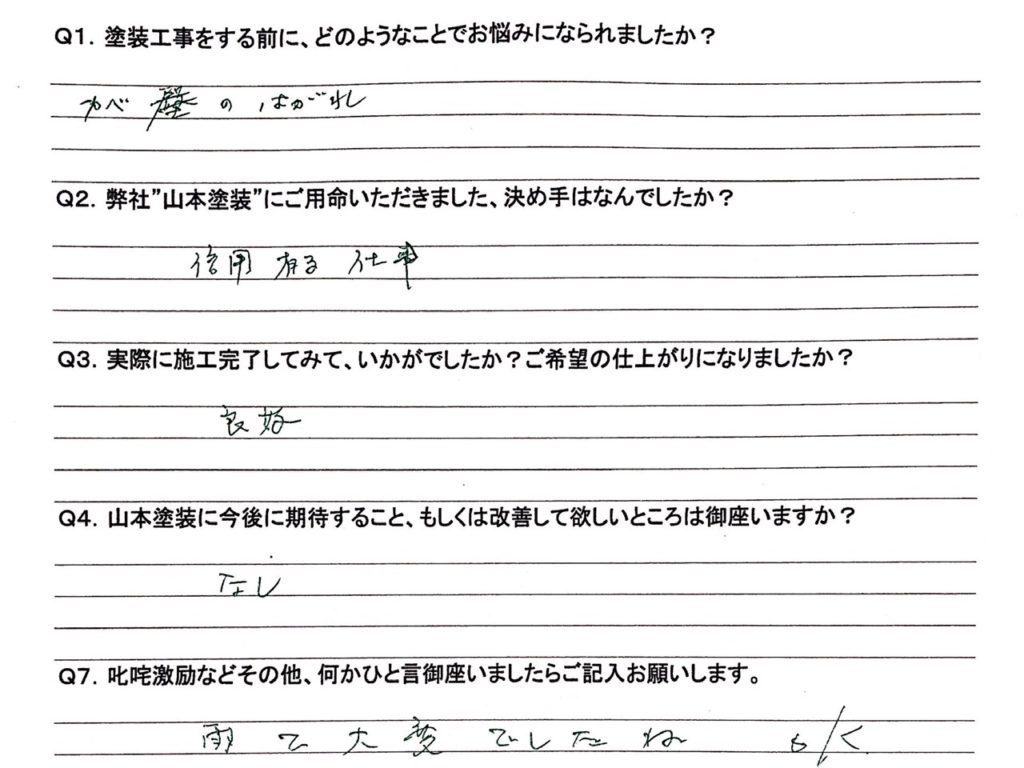 Q1. 塗装工事をする前に、どのようなことでお悩みになられましたか？
カベ 壁のはがれ
Q2. 弊社”山本塗装”にご用命いただきました、決め手はなんでしたか？
信用有る仕事
Q3. 実際に施工完了してみて、いかがでしたか？ご希望の仕上がりになりましたか？
良好
Q4. 山本塗装に今後に期待すること、もしくは改善して欲しいところは御座いますか？
なし
Q7. 叱咤激励などその他、何かひと言御座いましたらご記入お願いします。
雨で大変でしたね